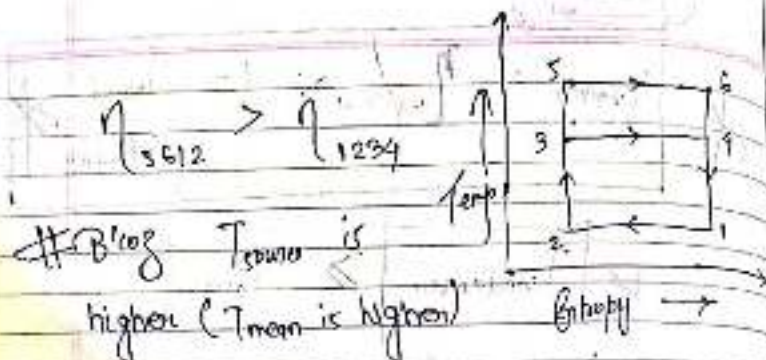 η5612 > η1234
# B'coz Tsource is
higher (Tmean is higher)
5 6
3 4
Temp
2 1
Entropy →